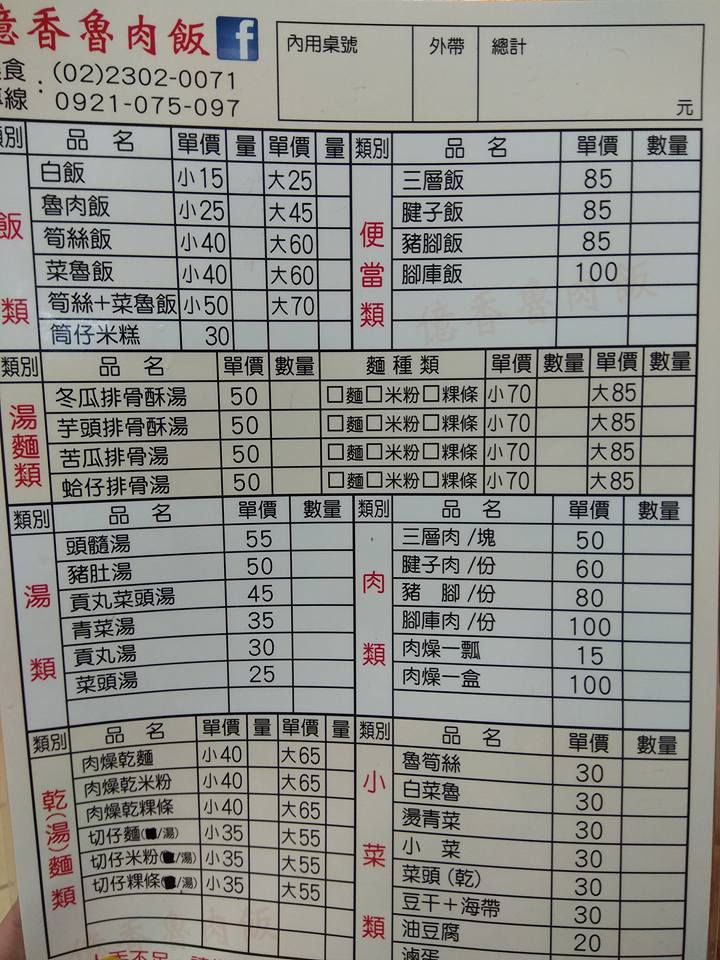 億香魯肉飯 f
食 : (02)2302-0071
線 0921-075-097
內用桌號 外帶 總計 元
類別 品名 單價 量 單價 量 類別 品名 單價 數量
飯類
白飯 小15 大25
魯肉飯 小25 大45
筍絲飯 小40 大60
菜魯飯 小40 大60
筍絲+菜魯飯 小50 大70
筒仔米糕 30
便當類
三層飯 85
腱子飯 85
豬腳飯 85
腳庫飯 100
億香魯肉飯
類別 品名 單價 數量 麵種類 單價 數量 單價 數量
湯麵類
冬瓜排骨酥湯 50 □麵□米粉□粿條 小70 大85
芋頭排骨酥湯 50 □麵□米粉□粿條 小70 大85
苦瓜排骨湯 50 □麵□米粉□粿條 小70 大85
蛤仔排骨湯 50 □麵□米粉□粿條 小70 大85
類別 品名 單價 數量 類別 品名 單價 數量
湯類
頭髓湯 55
豬肚湯 50
貢丸菜頭湯 45
青菜湯 35
貢丸湯 30
菜頭湯 25
肉類
三層肉/塊 50
腱子肉/份 60
豬腳/份 80
腳庫肉/份 100
肉燥一瓢 15
肉燥一盒 100
類別 品名 單價 量 單價 量 類別 品名 單價 數量
乾(湯)麵類
肉燥乾麵 小40 大65
肉燥乾米粉 小40 大65
肉燥乾粿條 小40 大65
切仔麵(/湯) 小35 大55
切仔米粉(/湯) 小35 大55
切仔粿條(/湯) 小35 大55
億香魯肉飯
小菜類
魯筍絲 30
白菜魯 30
燙青菜 30
小菜 30
菜頭(乾) 30
豆干+海帶 30
油豆腐 20
滷蛋